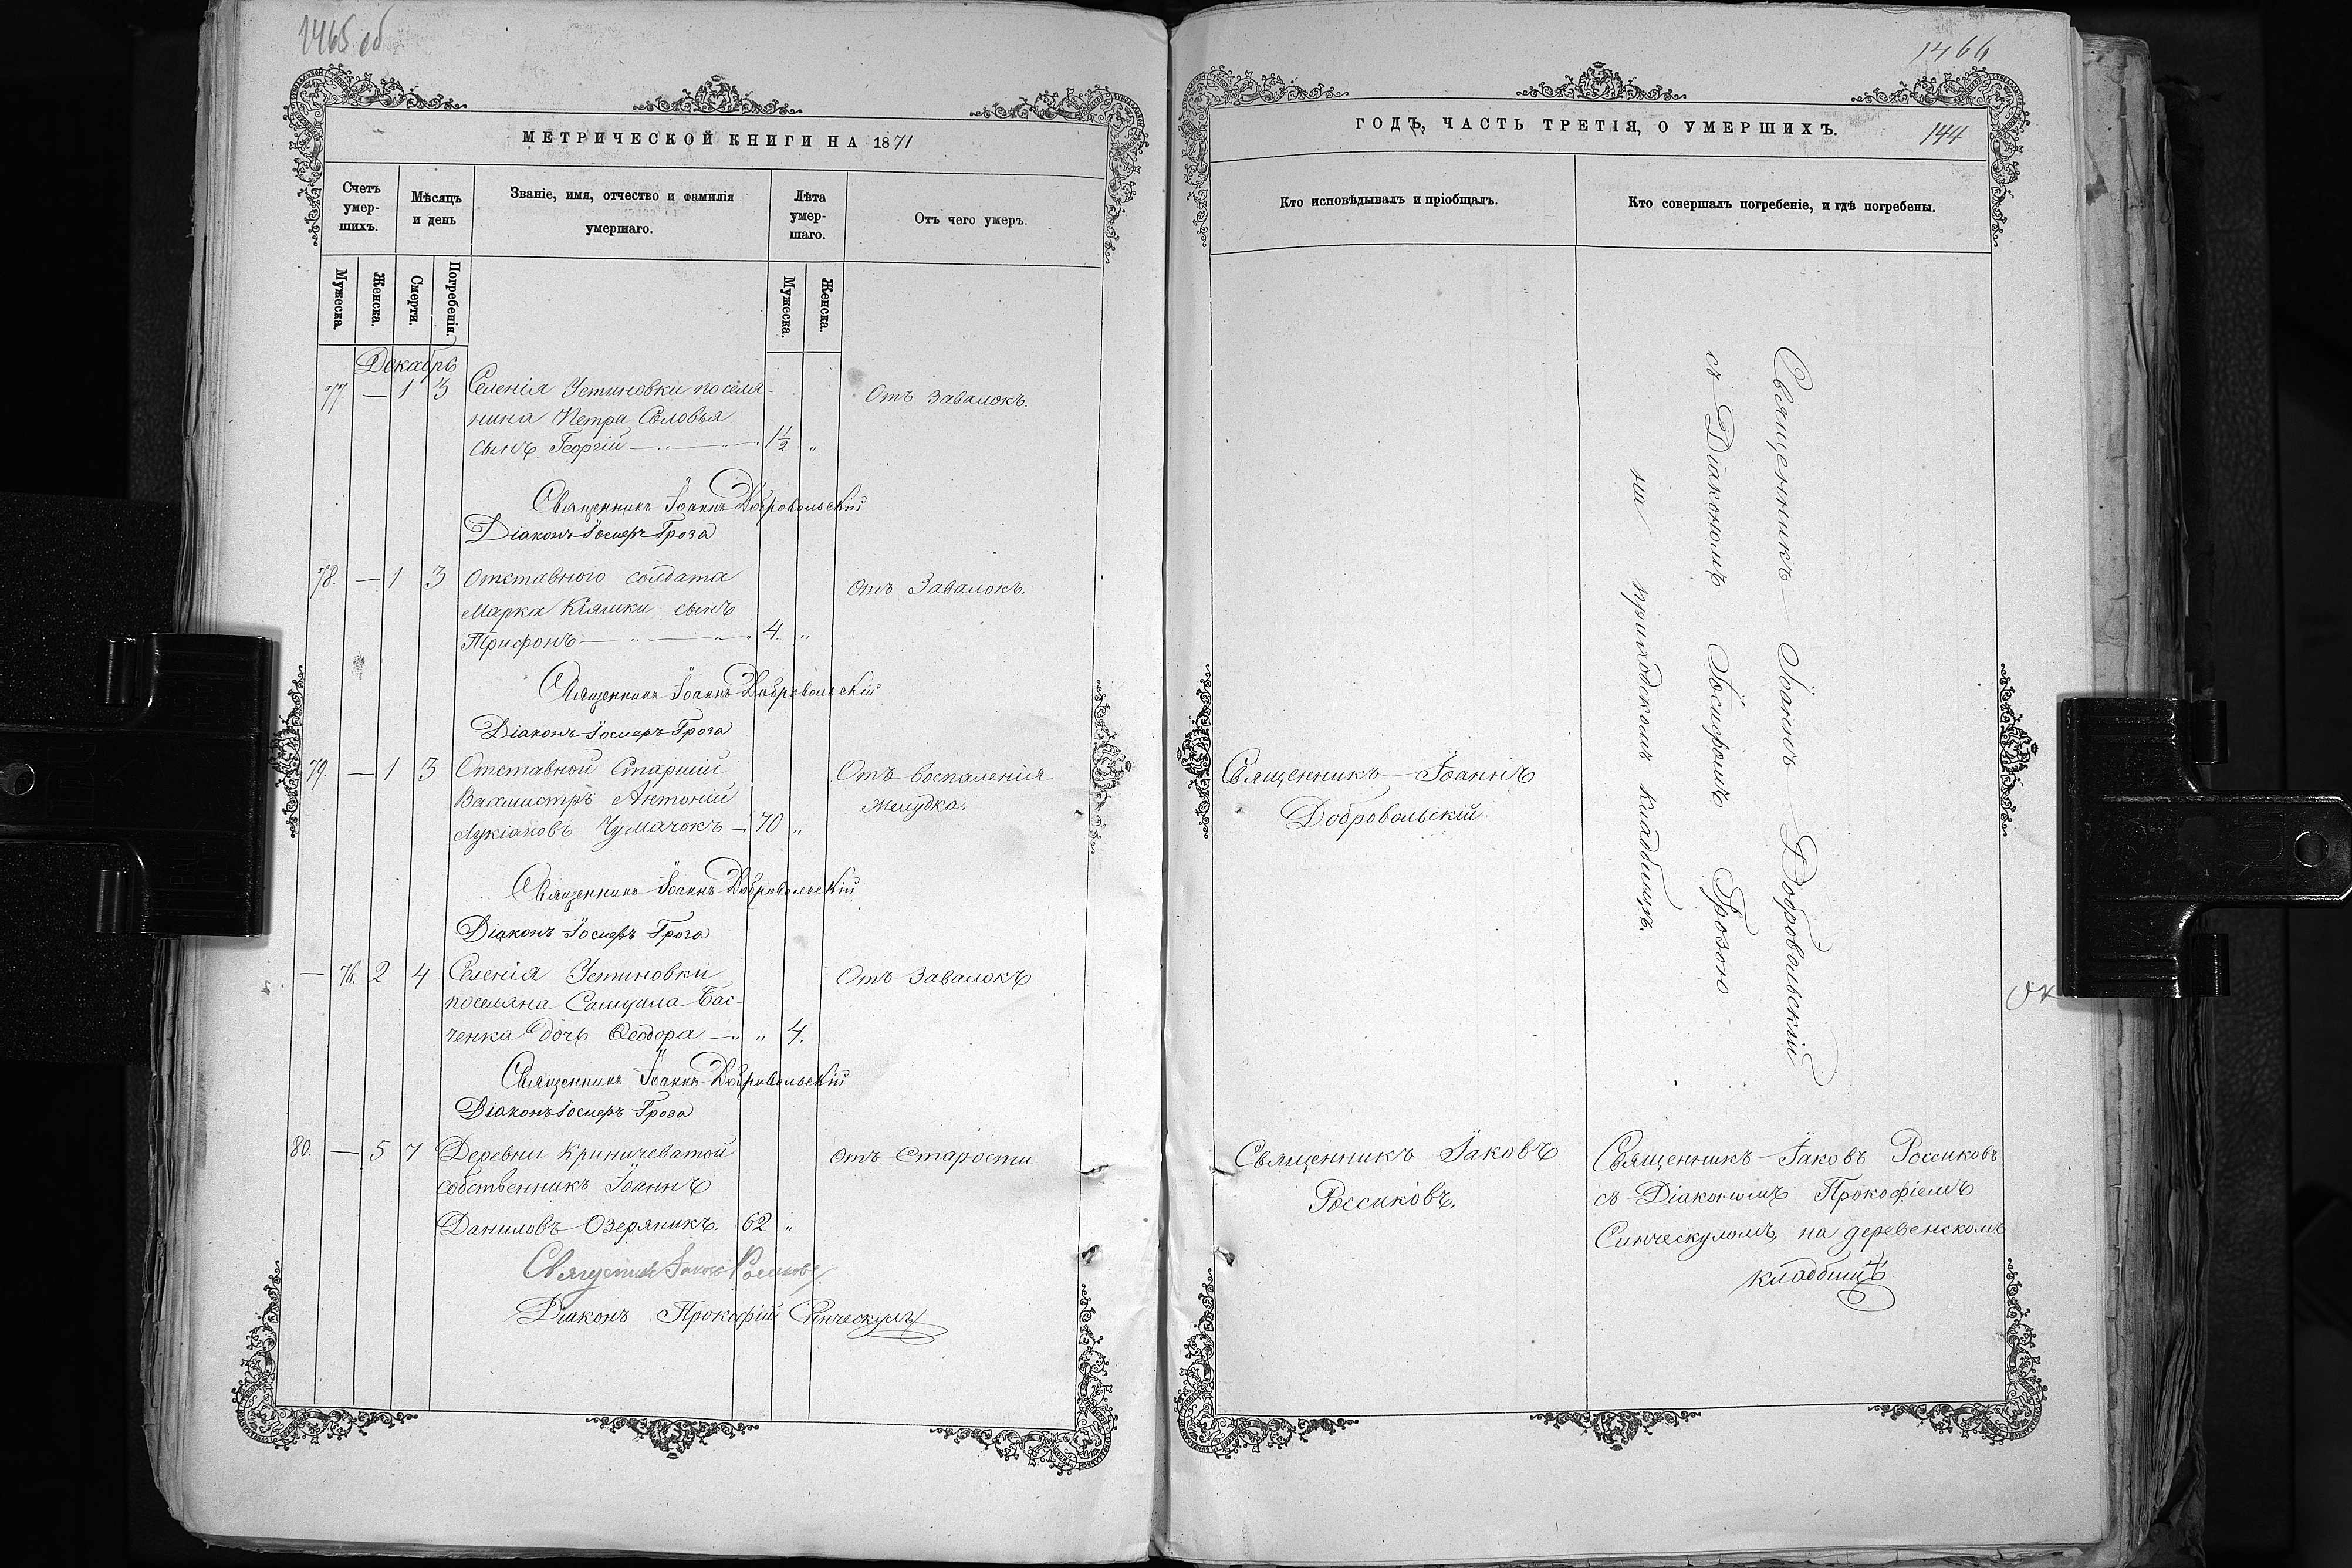 1465 об
МЕТРИЧЕСКОЙ КНИГИ НА 1871
Счетъ умер-шихъ.
Мѣсяцъ и день
Званіе, имя, отчество и фамилія умершаго.
Лѣта умер-шаго.
Отъ чего умеръ.
Мужеска.
Женска.
Смерти.
Погребенія.
Мужеска.
Женска.
Декабрь
77. — 1 3 Селенія Устиновки поселя-
нина Петра Соловья
сынъ Георгій 1½ „
Отъ завалокъ.
Священникъ Іоаннъ Добровольскій
Діаконъ Іосифъ Гроза
78. — 1 3 Отставного солдата
Марка Кіяшки сынъ
Трифонъ 4. „
Отъ завалокъ.
Священникъ Іоаннъ Добровольскій
Діаконъ Іосифъ Гроза
79. — 1 3 Отставной Старшій
Вахмистръ Антоній
Лукіановъ Чумачокъ — 70 „
Отъ воспаленія
желудка.
Священникъ Іоаннъ Добровольскій
Діаконъ Іосифъ Гроза
— 76. 2 4 Селенія Устиновки
поселяна Самуила Бас-
ченка дочь Ѳеодора „ 4.
Отъ завалокъ
Священникъ Іоаннъ Добровольскій
Діаконъ Іосифъ Гроза
80. — 5 7 Деревни Криничеватой
собственникъ Іоаннъ
Даниловъ Озеряникъ. 62 „
отъ Старости
Священникъ Іаковъ Россиковъ
Діаконъ Прокофій Синческулъ
1466
ГОДЪ, ЧАСТЬ ТРЕТІЯ, О УМЕРШИХЪ.
144
Кто исповѣдывалъ и пріобщалъ.
Кто совершалъ погребеніе, и гдѣ погребены.
Священникъ Іоаннъ
Добровольскій
Священникъ Іоаннъ Добровольскій
съ Діакономъ Іосифомъ Грозою
на приходскомъ кладбищѣ.
Священникъ Іаковъ
Россиковъ.
Священникъ Іаковъ Россиковъ
съ Діакономъ Прокофіемъ
Синческуломъ, на деревенскомъ
кладбищѣ